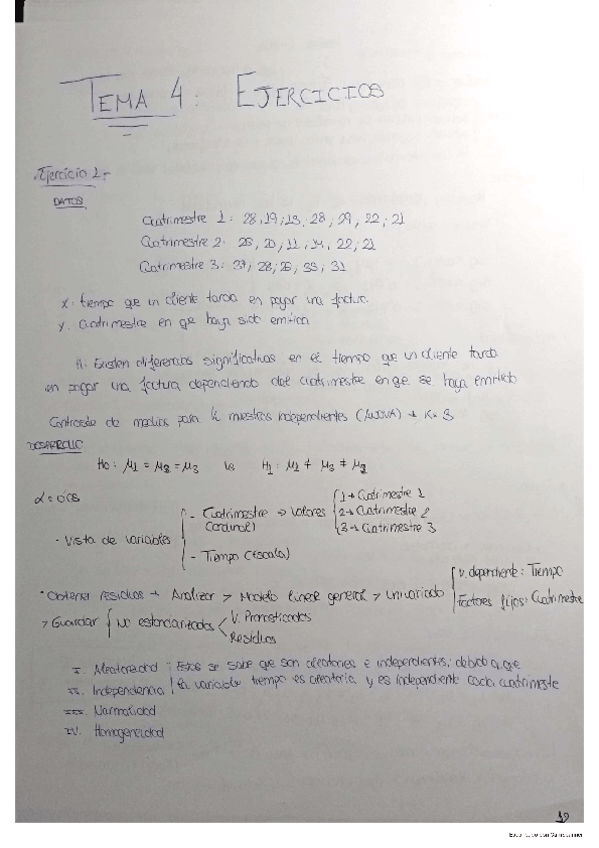 TEMA 4: EJERCICIOS
Ejercicio 1.-
DATOS
Cuatrimestre 1: 28, 19, 13, 28, 29, 22, 21
Cuatrimestre 2: 26, 20, 11, 14, 22, 21
Cuatrimestre 3: 27, 28, 26, 35, 31
X: tiempo que un cliente tarda en pagar una factura
Y: cuatrimestre en qe haya sido emitida
H: Existen diferencias significativas en el tiempo que un cliente tarda
en pagar una factura dependiendo del cuatrimestre en qe se haya emitido
Contraste de medias para K muestras independientes (ANOVA) → K=3
DESARROLLO
H0: μ1 = μ2 = μ3 vs H1: μ1 ≠ μ3 ≠ μ2
α = 0'05
- Vista de variables
- Cuatrimestre → Valores
(ordinal)
1 → Cuatrimestre 1
2 → Cuatrimestre 2
3 → Cuatrimestre 3
- Tiempo (Escala)
* Obtener residuos → Analizar > Modelo lineal general > Univariado
V. dependiente: Tiempo
Factores fijos: Cuatrimestre
> Guardar
No estandarizados
V. Pronosticados
Residuos
I. Aleatoriedad
II. Independencia
Estos se sabe que son aleatorios e independientes, debido a que
la variable tiempo es aleatoria y es independiente cada cuatrimestre
III. Normalidad
IV. Homogeneidad